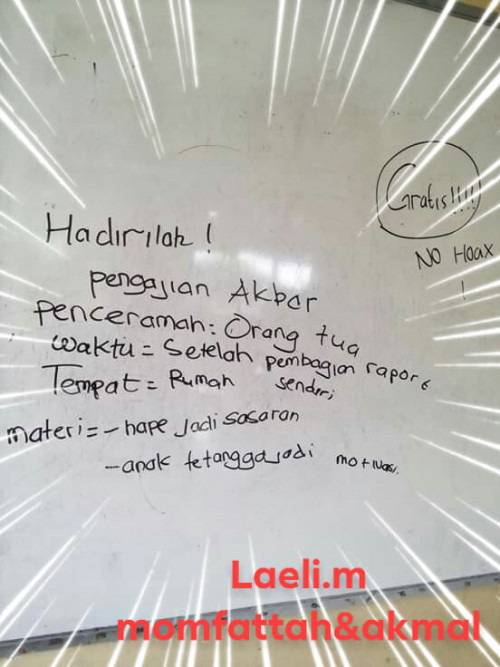 Gratis!!!!
NO HOAX
!
Hadirilah !
pengajian Akbar
penceramah: Orang tua
waktu = Setelah pembagian rapore
Tempat = Rumah sendiri
materi = - hape jadi sasaran
- anak tetangga jadi motivasi.
Laeli.m
momfattah&akmal